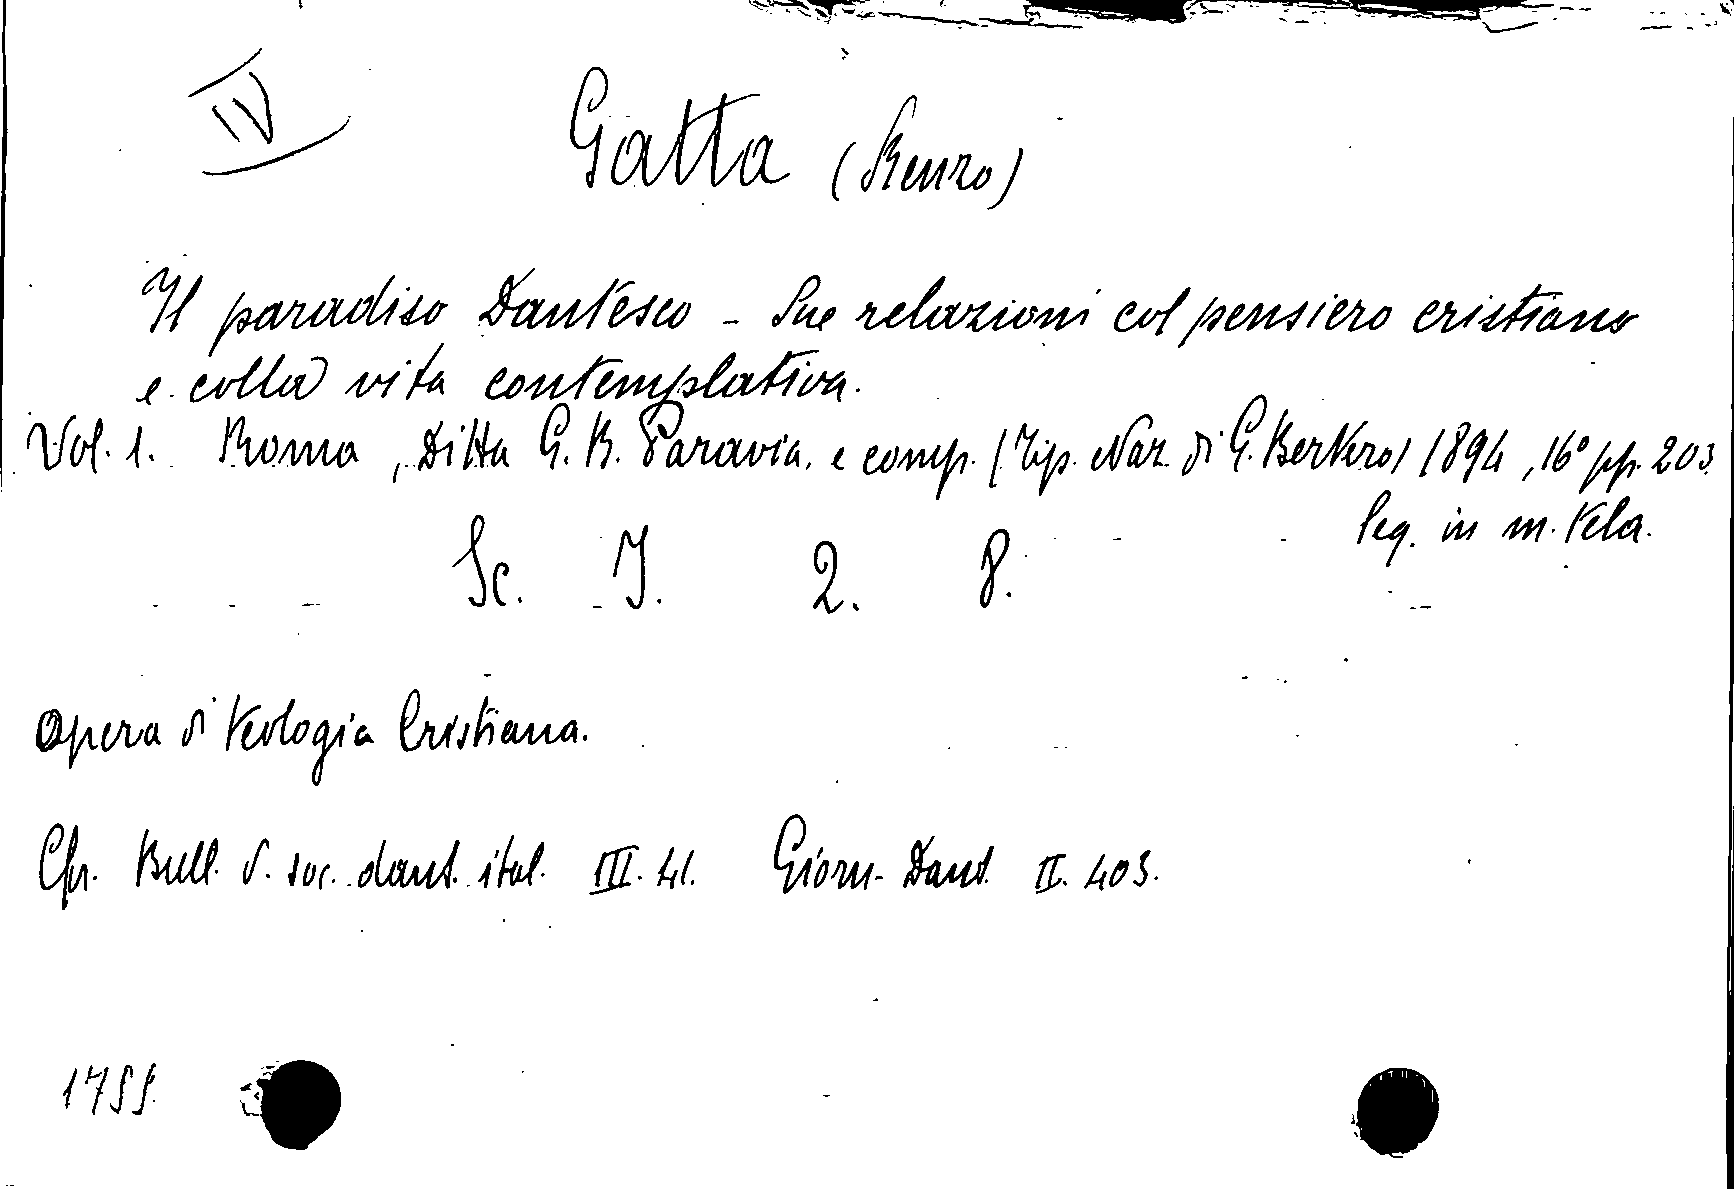 IV
Gatta (Renzo)
Il paradiso Dantesco - Sue relazioni col pensiero cristiano
e colla vita contemplativa.
Vol. 1. Roma, Ditta G. B. Paravia. e comp. (Tip. Naz. di G. Bertero) 1894, 16° pp. 203.
leg. in m. tela.
Sc. I. 2. 8.
Opera di teologia Cristiana.
Cfr. Bull. d. soc. dant. ital. III. 41. Giorn. Dant. II. 403.
1755.